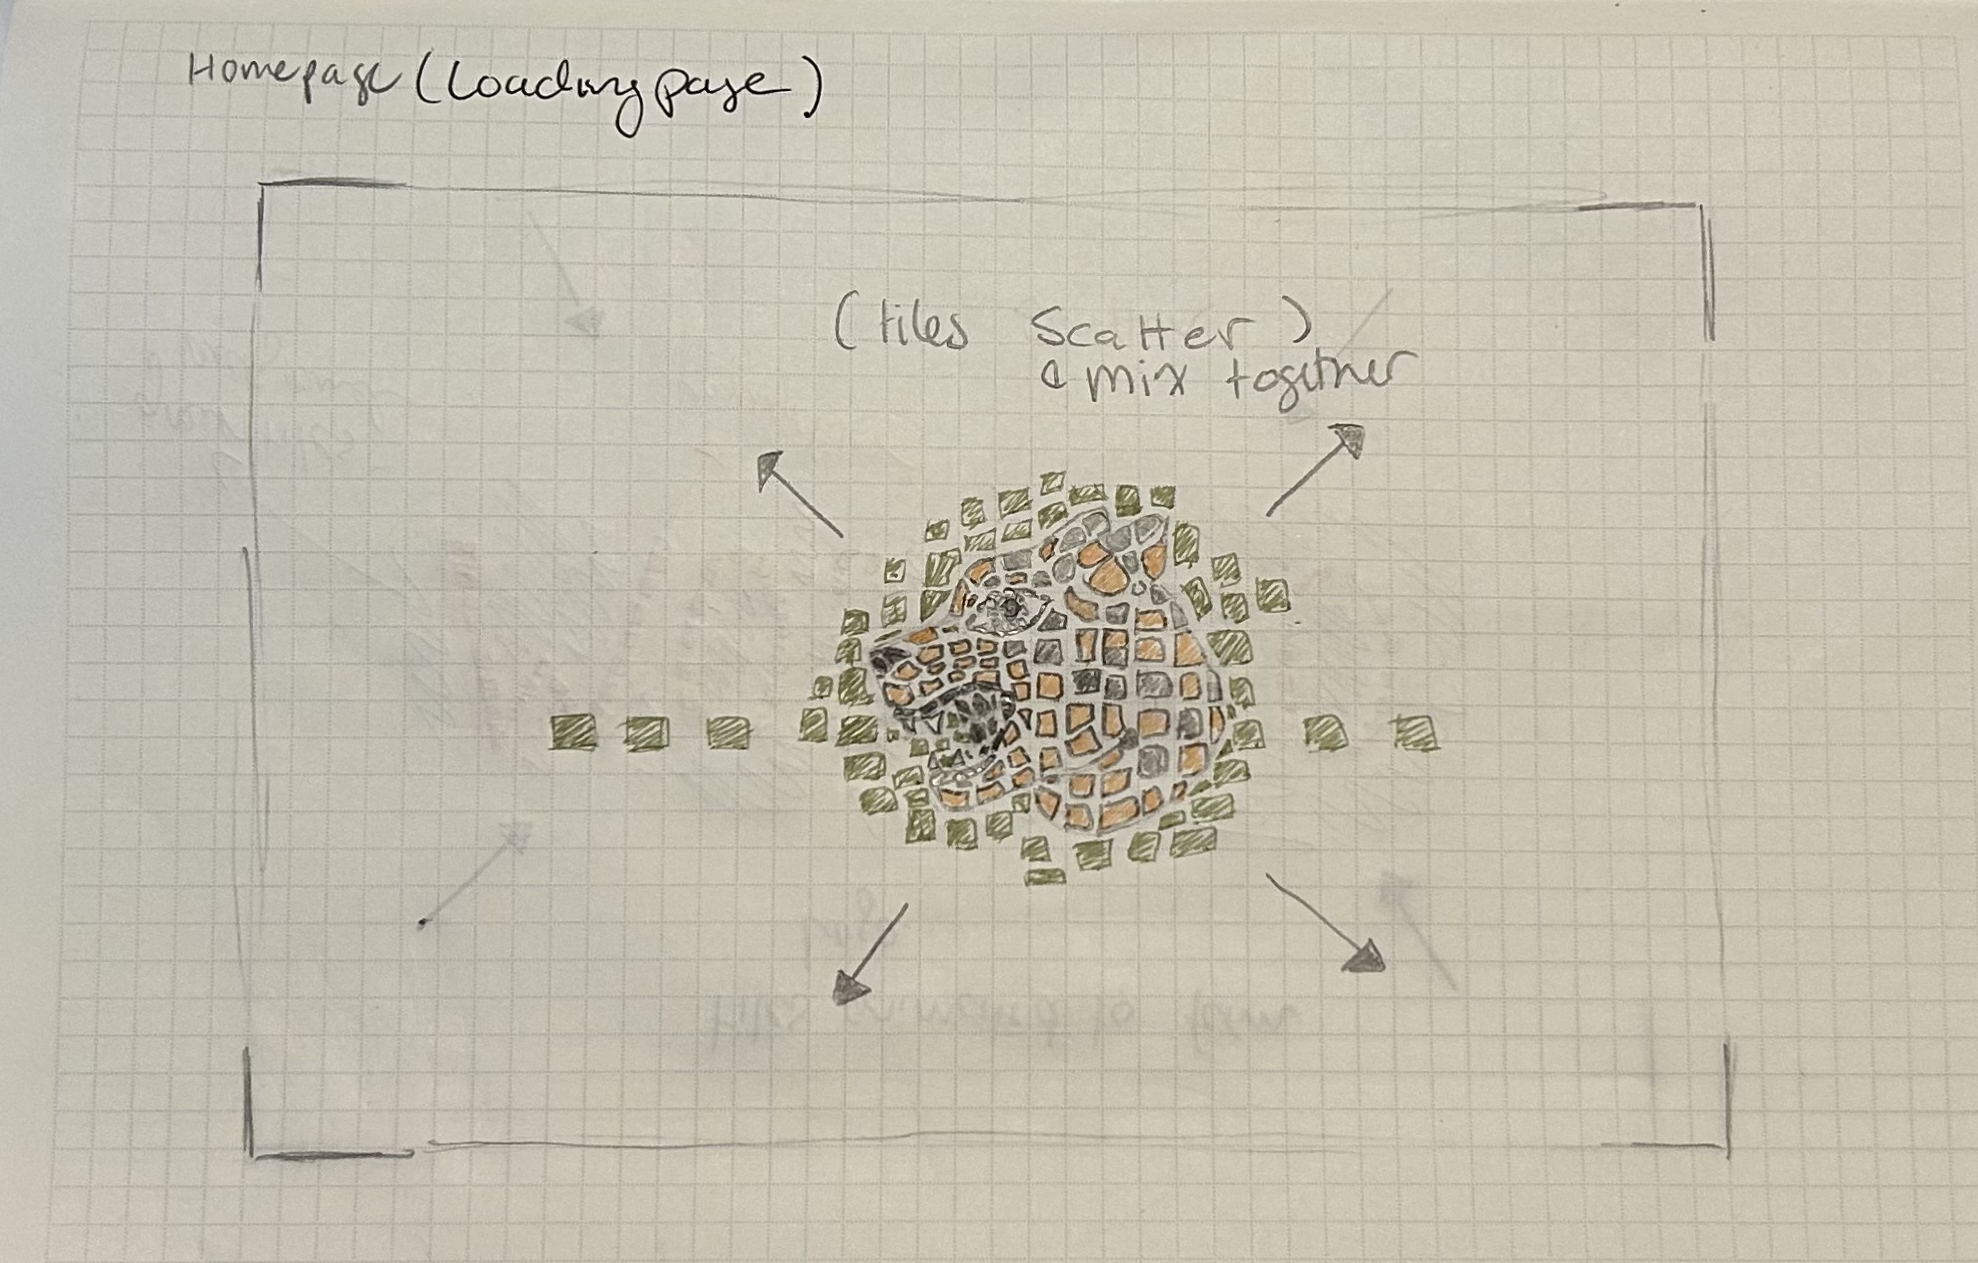 Homepage (Loading page)
(tiles Scatter)
& mix together